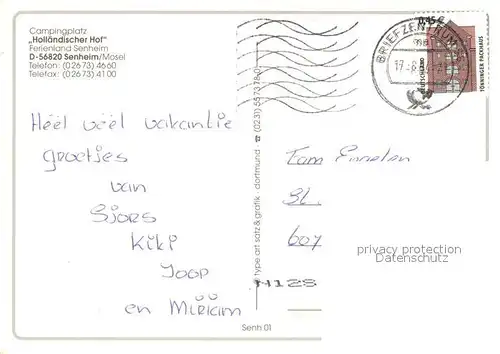 Campingplatz
„Holländischer Hof"
Ferienland Senheim
D-56820 Senheim/Mosel
Telefon: (02673) 4660
Telefax: (02673) 4100
Héél véél vakantie
groetjes
van
Sjors
Kiki
Joop
en Miriam
type art satz & grafik · dortmund ☎ (0231) 557378-0
Senh 01
BRIEFZENTRUM
0,45€
DEUTSCHLAND
TÖNNINGER PACKHAUS
Fam
St.
607
N128
privacy protection
Datenschutz